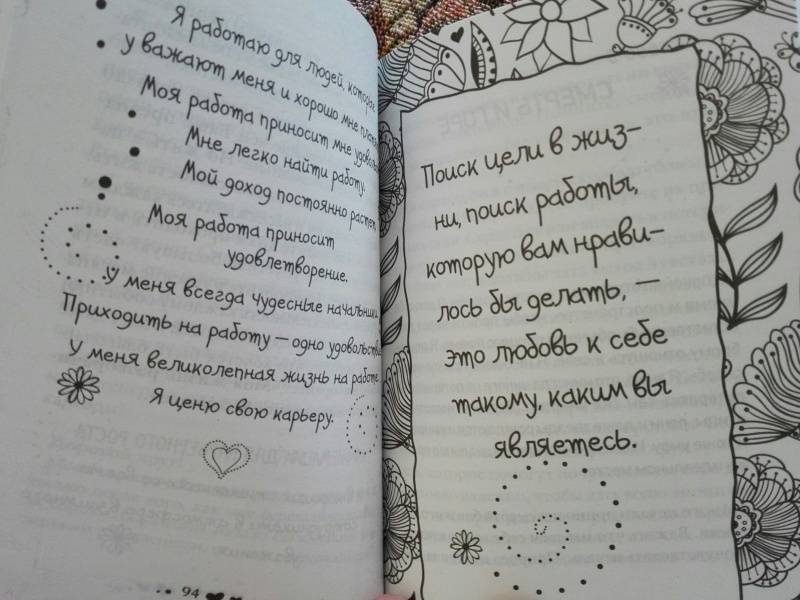 Я работаю для людей, которые
уважают меня и хорошо мне
Моя работа приносит мне
Мне легко найти работу.
Мой доход постоянно растет.
Моя работа приносит
удовлетворение.
У меня всегда чудесные начальники.
Приходить на работу — одно удовольствие
У меня великолепная жизнь на работе
Я ценю свою карьеру.
94
Поиск цели в жиз-
ни, поиск работы,
которую вам нрави-
лось бы делать, —
это любовь к себе
такому, каким вы
являетесь.